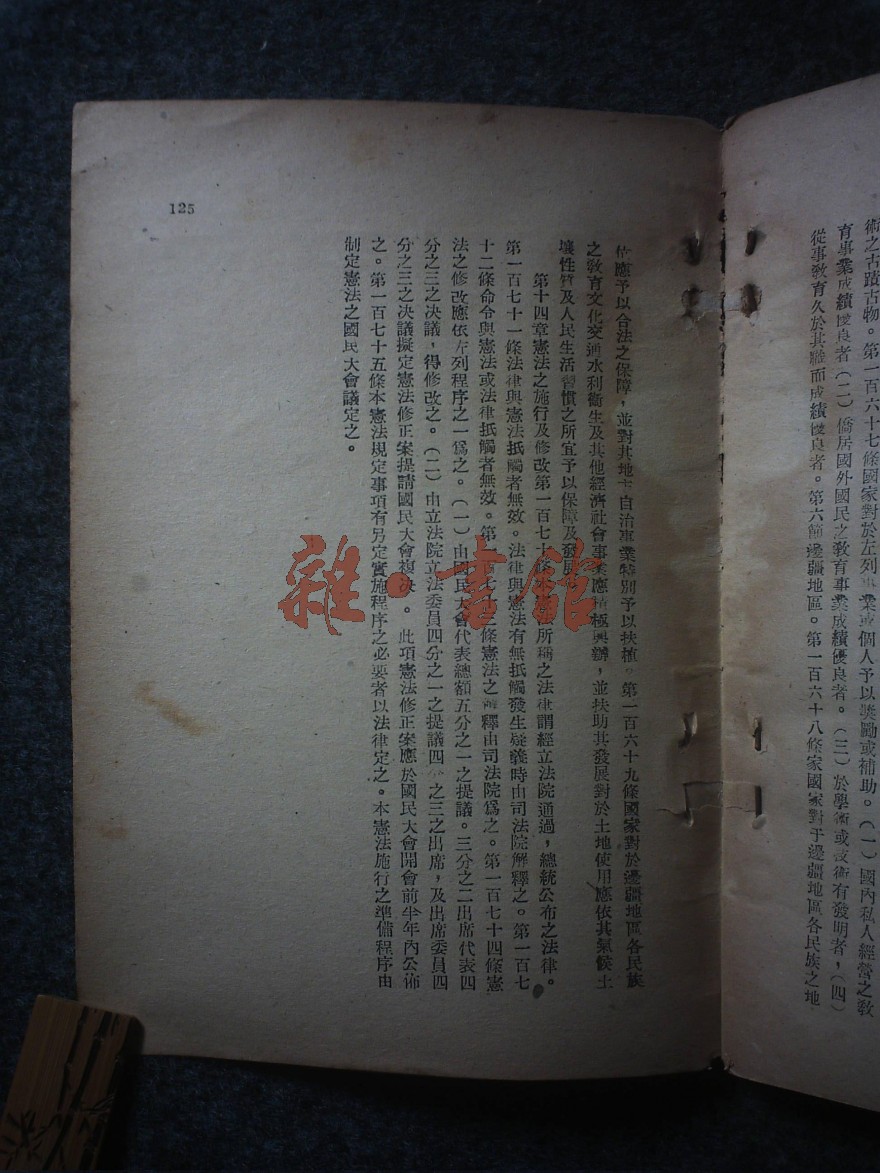 術之古蹟古物。第一百六十七條國家對於左列事業或個人予以獎勵或補助。(一)國內私人經營之敎
育事業成績優良者(二)僑居國外國民之敎育事業成績優良者。(三)於學術或技術有發明者,(四)
從事敎育久於其職而成績優良者。第六節邊疆地區。第一百六十八條家國家對于邊疆地區各民族之地
位應予以合法之保障,並對其地方自治事業特別予以扶植。第一百六十九條國家對於邊疆地區各民族
之敎育文化交通水利衞生及其他經濟社會事業應積極興辦,並扶助其發展對於土地使用應依其氣候土
壤性質及人民生活習慣之所宜予以保障及發展。
第十四章憲法之施行及修改第一百七十條本憲法所稱之法律謂經立法院通過,總統公布之法律。
第一百七十一條法律與憲法抵觸者無效。法律與憲法有無抵觸發生疑義時由司法院解釋之。第一百七
十二條命令與憲法或法律抵觸者無效。第一百七十三條憲法之解釋由司法院爲之。第一百七十四條憲
法之修改應依左列程序之一爲之。(一)由國民大會代表總額五分之一之提議。三分之二出席代表四
分之三之決議,得修改之。(二)由立法院立法委員四分之一之提議四分之三之出席,及出席委員四
分之三之決議擬定憲法修正案提請國民大會複決。此項憲法修正案應於國民大會開會前半年內公佈
之。第一百七十五條本憲法規定事項有另定實施程序之必要者以法律定之。本憲法施行之準備程序由
制定憲法之國民大會議定之。
125
雜·書館